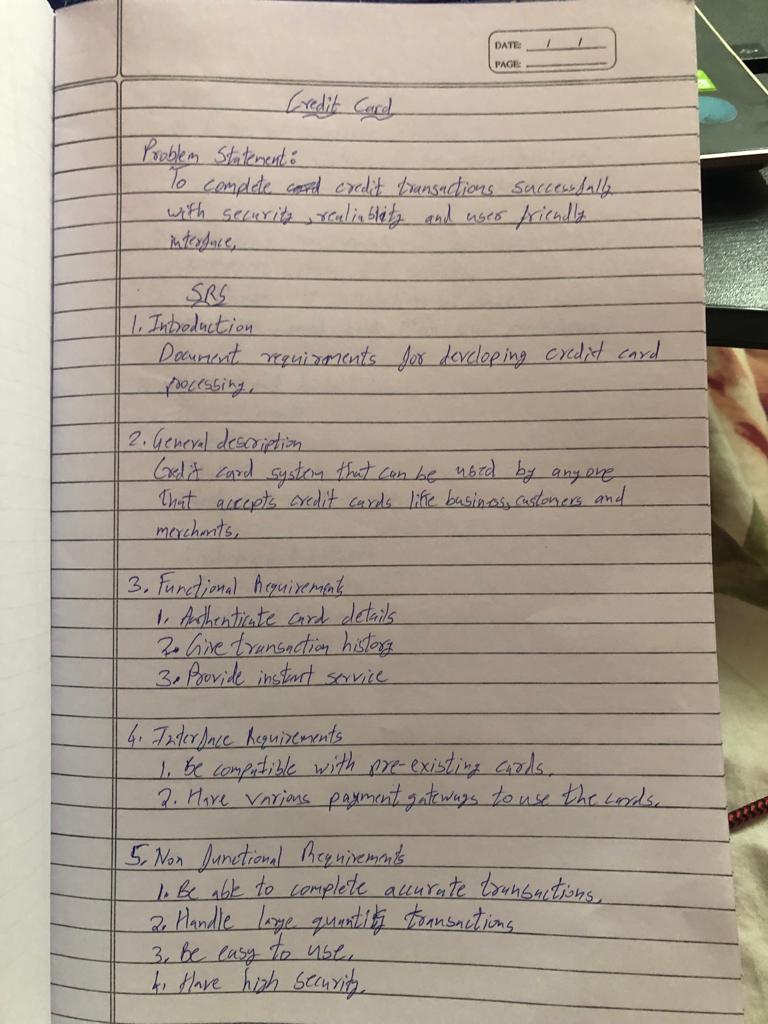 DATE: / /
PAGE:
Credit Card
Problem Statement:
To complete credit transactions successfully
with security, realiablity and user friendly
interface,
SRS
1. Introduction
Document requirments for developing credit card
processing,
2. General description
Credit card system that can be used by anyone
that accepts credit cards like business, customers and
merchants,
3. Functional Requirements
1. Authenticate card details
2. Give transaction history
3. Provide instant service
4. Interface Requirements
1. Be compatible with pre-existing cards,
2. Have various payment gateways to use the cards,
5. Non functional Requirements
1. Be able to complete accurate transactions,
2. Handle large quantity transactions
3. Be easy to use,
4. Have high security,